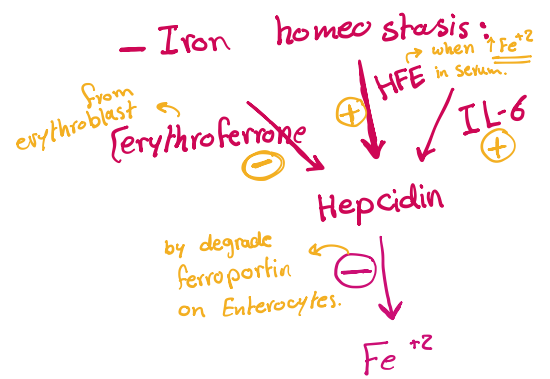 – Iron homeostasis:
HFE → when ↑Fe+2
in serum.
from
erythroblast
[erythroferrone
+
IL-6
+
–
Hepcidin
by degrade
ferroportin
on Enterocytes.
–
Fe+2